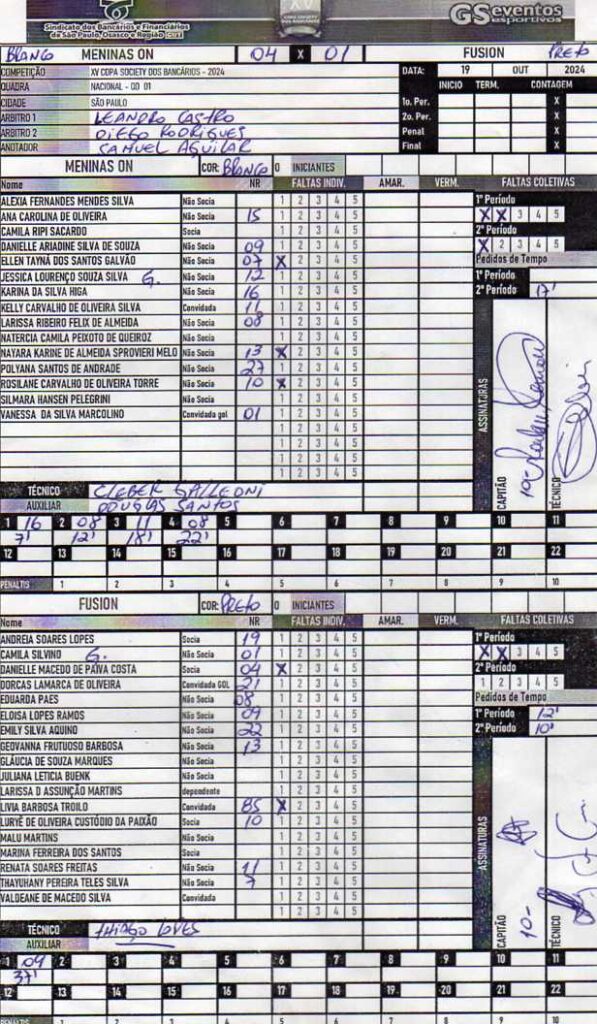 Sindicato dos Bancários e Financiários
de São Paulo, Osasco e Região CUT
XV
COPA SOCIETY
DOS BANCÁRIOS
GSeventos
esportivos
BRANCO MENINAS ON 04 X 01 FUSION PRETO
COMPETIÇÃO XV COPA SOCIETY DOS BANCÁRIOS - 2024 DATA: 19 OUT 2024
QUADRA NACIONAL - QD 01 INICIO TERM. CONTAGEM
CIDADE SÃO PAULO 1o. Per. X
ARBITRO 1 LEANDRO CASTRO 2o. Per. X
ARBITRO 2 DIEGO RODRIGUES Penal X
ANOTADOR SAMUEL AGUILAR Final X
MENINAS ON COR: BRANCO 0 INICIANTES
Nome NR FALTAS INDIV. AMAR. VERM. FALTAS COLETIVAS
ALEXIA FERNANDES MENDES SILVA Não Socia 1 2 3 4 5 1º Período
ANA CAROLINA DE OLIVEIRA Não Socia 15 1 2 3 4 5 X X 3 4 5
CAMILA RIPI SACARDO Socia 1 2 3 4 5 2º Período
DANIELLE ARIADINE SILVA DE SOUZA Não Socia 09 1 2 3 4 5 X 2 3 4 5
ELLEN TAYNÁ DOS SANTOS GALVÃO Não Socia 07 X 2 3 4 5 Pedidos de Tempo
JESSICA LOURENÇO SOUZA SILVA G. Não Socia 12 1 2 3 4 5 1º Período
KARINA DA SILVA HIGA Não Socia 16 1 2 3 4 5 2º Período 17'
KELLY CARVALHO DE OLIVEIRA SILVA Convidada 11 1 2 3 4 5
LARISSA RIBEIRO FELIX DE ALMEIDA Não Socia 08 1 2 3 4 5
NATERCIA CAMILA PEIXOTO DE QUEIROZ Não Socia 1 2 3 4 5
NAYARA KARINE DE ALMEIDA SPROVIERI MELO Não Socia 13 X 2 3 4 5
POLYANA SANTOS DE ANDRADE Não Socia 27 1 2 3 4 5
ROSILANE CARVALHO DE OLIVEIRA TORRE Não Socia 10 X 2 3 4 5
SILMARA HANSEN PELEGRINI Não Socia 1 2 3 4 5
VANESSA DA SILVA MARCOLINO Convidada gol 01 1 2 3 4 5
1 2 3 4 5
1 2 3 4 5
1 2 3 4 5
1 2 3 4 5
ASSINATURAS
CAPITÃO 10-
TÉCNICO
TÉCNICO CLEBER GALLEONI
AUXILIAR DOUGLAS SANTOS
1 16 2 08 3 11 4 08 5 6 7 8 9 10 11
7' 12' 18' 22'
12 13 14 15 16 17 18 19 20 21 22
PENALTIS 1 2 3 4 5 6 7 8 9 10
FUSION COR: PRETO 0 INICIANTES
Nome NR FALTAS INDIV. AMAR. VERM. FALTAS COLETIVAS
ANDREIA SOARES LOPES Socia 19 1 2 3 4 5 1º Período
CAMILA SILVINO G. Não Socia 01 1 2 3 4 5 X X 3 4 5
DANIELLE MACEDO DE PAIVA COSTA Socia 04 X 2 3 4 5 2º Período
DORCAS LAMARCA DE OLIVEIRA Convidada GOL 21 1 2 3 4 5 1 2 3 4 5
EDUARDA PAES Não Socia 08 1 2 3 4 5 Pedidos de Tempo
ELOISA LOPES RAMOS Não Socia 09 1 2 3 4 5 1º Período 12'
EMILY SILVA AQUINO Não Socia 22 1 2 3 4 5 2º Período 10'
GEOVANNA FRUTUOSO BARBOSA Não Socia 13 1 2 3 4 5
GLÁUCIA DE SOUZA MARQUES Não Socia 1 2 3 4 5
JULIANA LETICIA BUENK Não Socia 1 2 3 4 5
LARISSA D ASSUNÇÃO MARTINS dependente 1 2 3 4 5
LIVIA BARBOSA TROILO Convidada 85 X 2 3 4 5
LURYÊ DE OLIVEIRA CUSTÓDIO DA PAIXÃO Socia 10 1 2 3 4 5
MALU MARTINS Não Socia 1 2 3 4 5
MARINA FERREIRA DOS SANTOS Socia 1 2 3 4 5
RENATA SOARES FREITAS Não Socia 11 1 2 3 4 5
THAYUHANY PEREIRA TELES SILVA Não Socia 7 1 2 3 4 5
VALDEANE DE MACEDO SILVA Convidada 1 2 3 4 5
1 2 3 4 5
ASSINATURAS
CAPITÃO 10-
TÉCNICO
TÉCNICO THIAGO LOPES
AUXILIAR
1 09 2 3 4 5 6 7 8 9 10 11
37'
12 13 14 15 16 17 18 19 20 21 22
PENALTIS 1 2 3 4 5 6 7 8 9 10